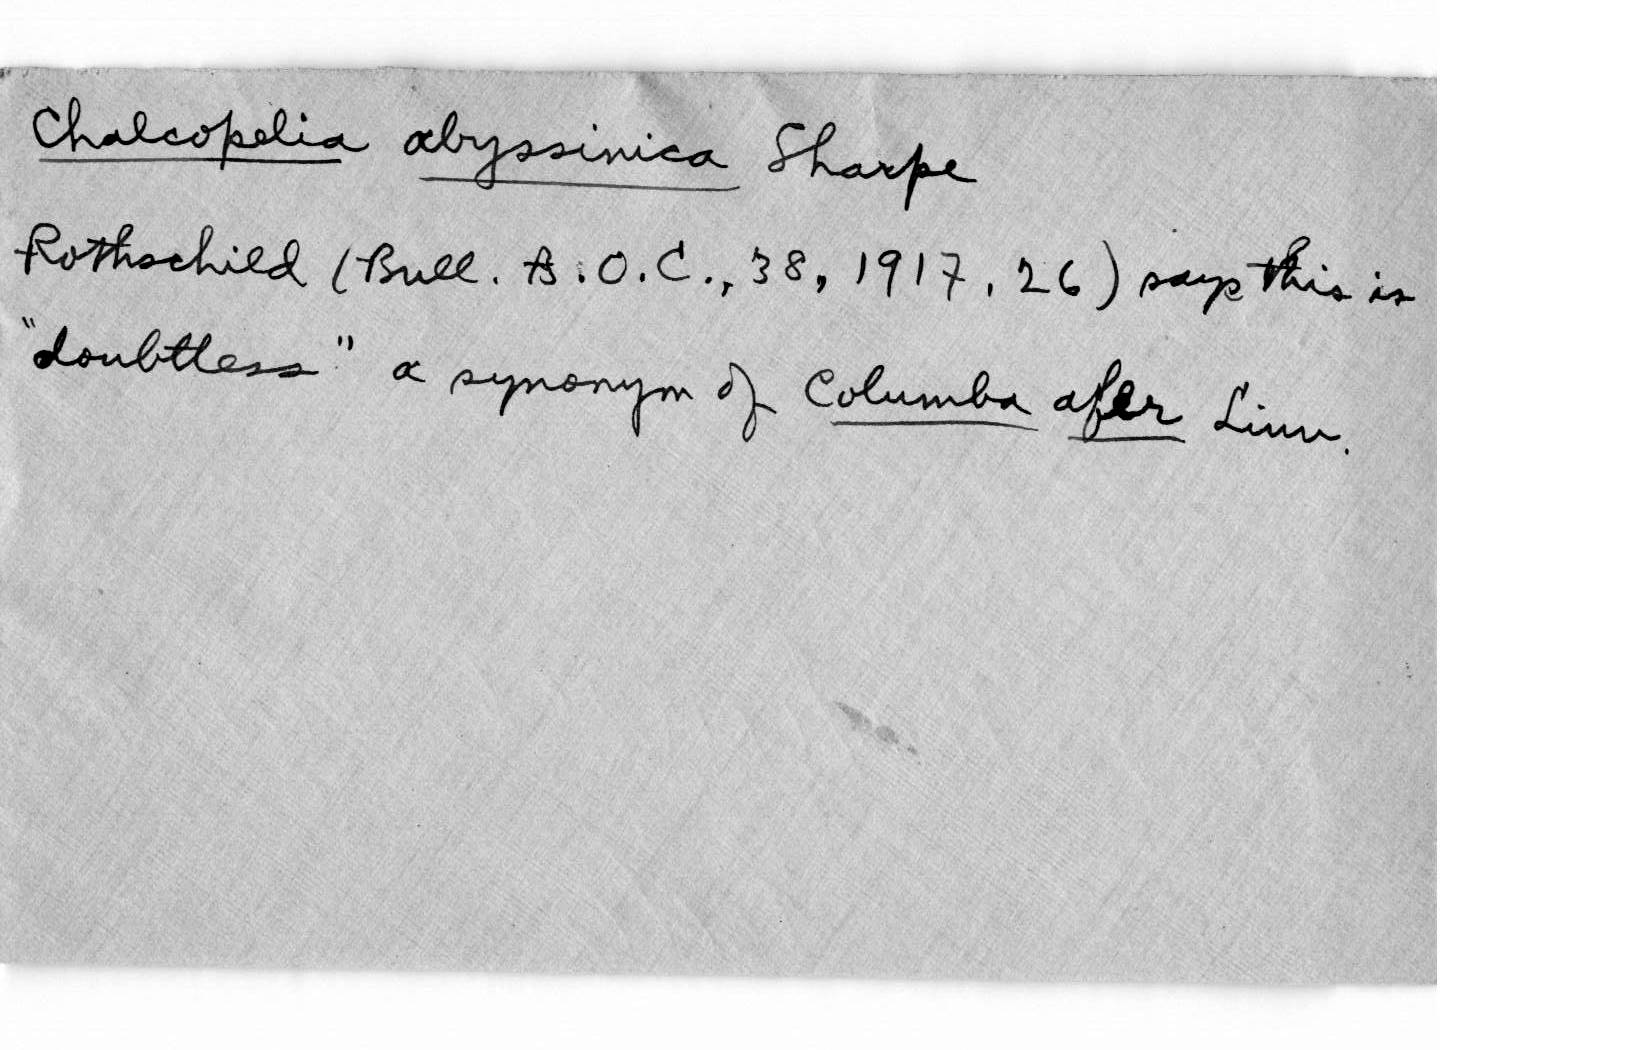 Chalcopelia abyssinica Sharpe
Rothschild (Bull. B.O.C., 38, 1917, 26) says this is
"doubtless" a synonym of Columba afer Linn.